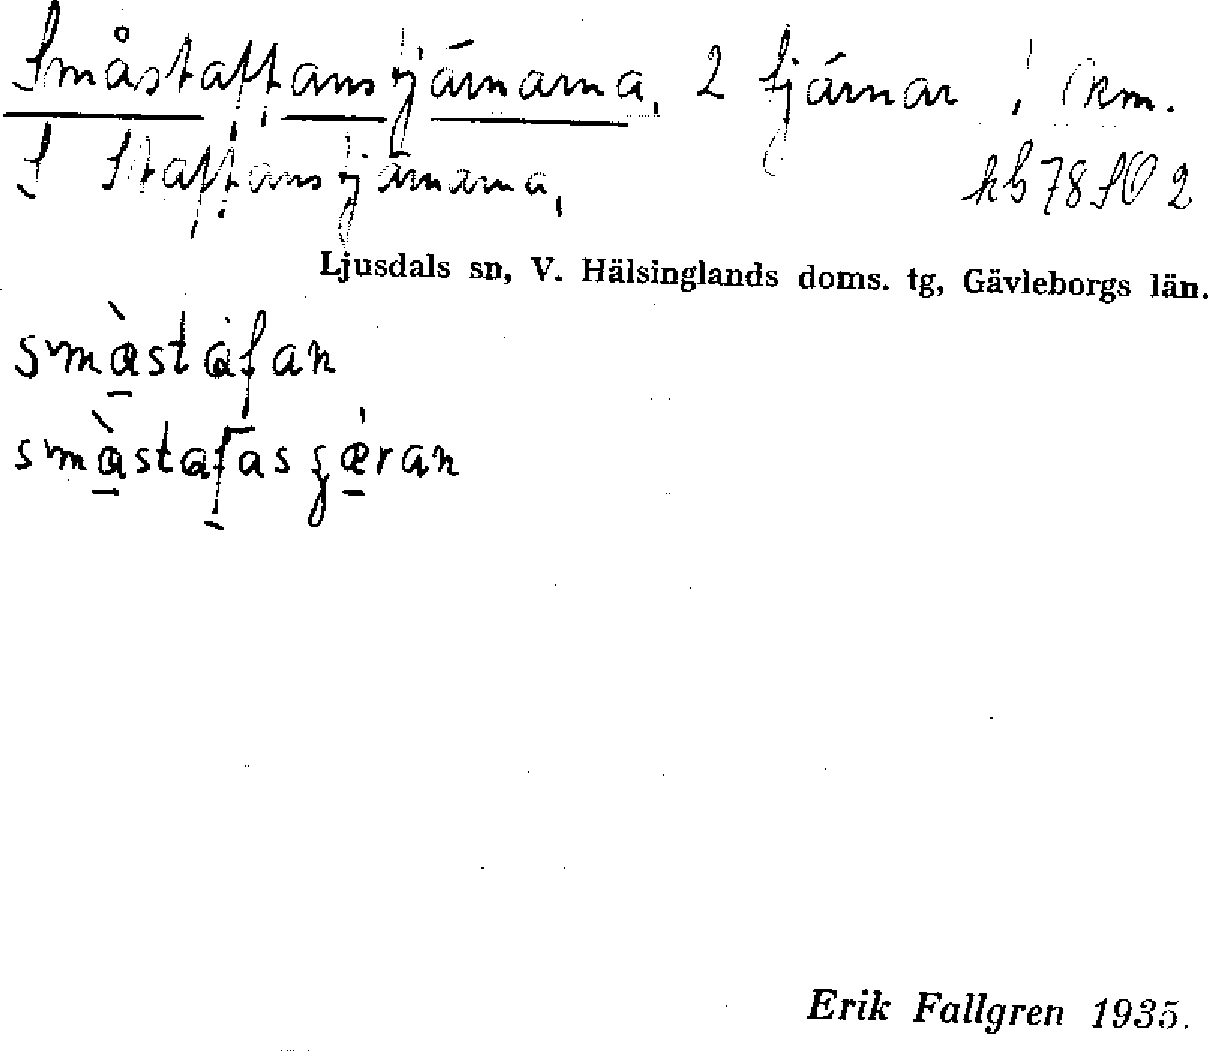 Småstaffanstjärnarna, 2 tjärnar, 1 km.
S Staffanstjärnarna,
kb 78 SO 2
Ljusdals sn, V. Hälsinglands doms. tg, Gävleborgs län.
smà̱stáfan
smà̱stafasʒǽ̱ran
Erik Fallgren 1935.